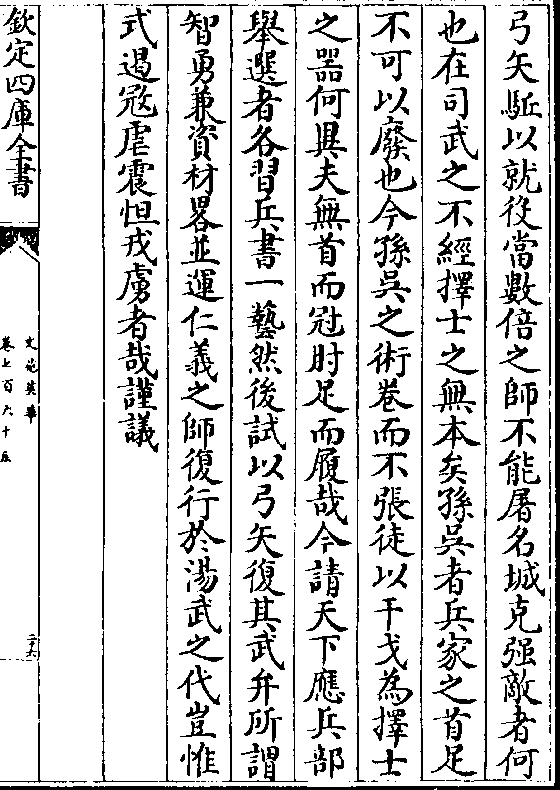 弓矢駈以就役當數倍之師不能屠名城克强敵者何
也在司武之不經擇士之無本矣孫吳者兵家之首足
不可以廢也今孫吳之術卷而不張徒以干戈為擇士
之器何異夫無首而冠刖足而履哉今請天下應兵部
舉選者各習兵書一藝然後試以弓矢復其武弁所謂
智勇兼資材畧並運仁義之師復行於湯武之代豈惟
式遏冦虐震怛戎虜者哉謹議
欽定四庫全書
文苑英華
卷七百六十五
二十六